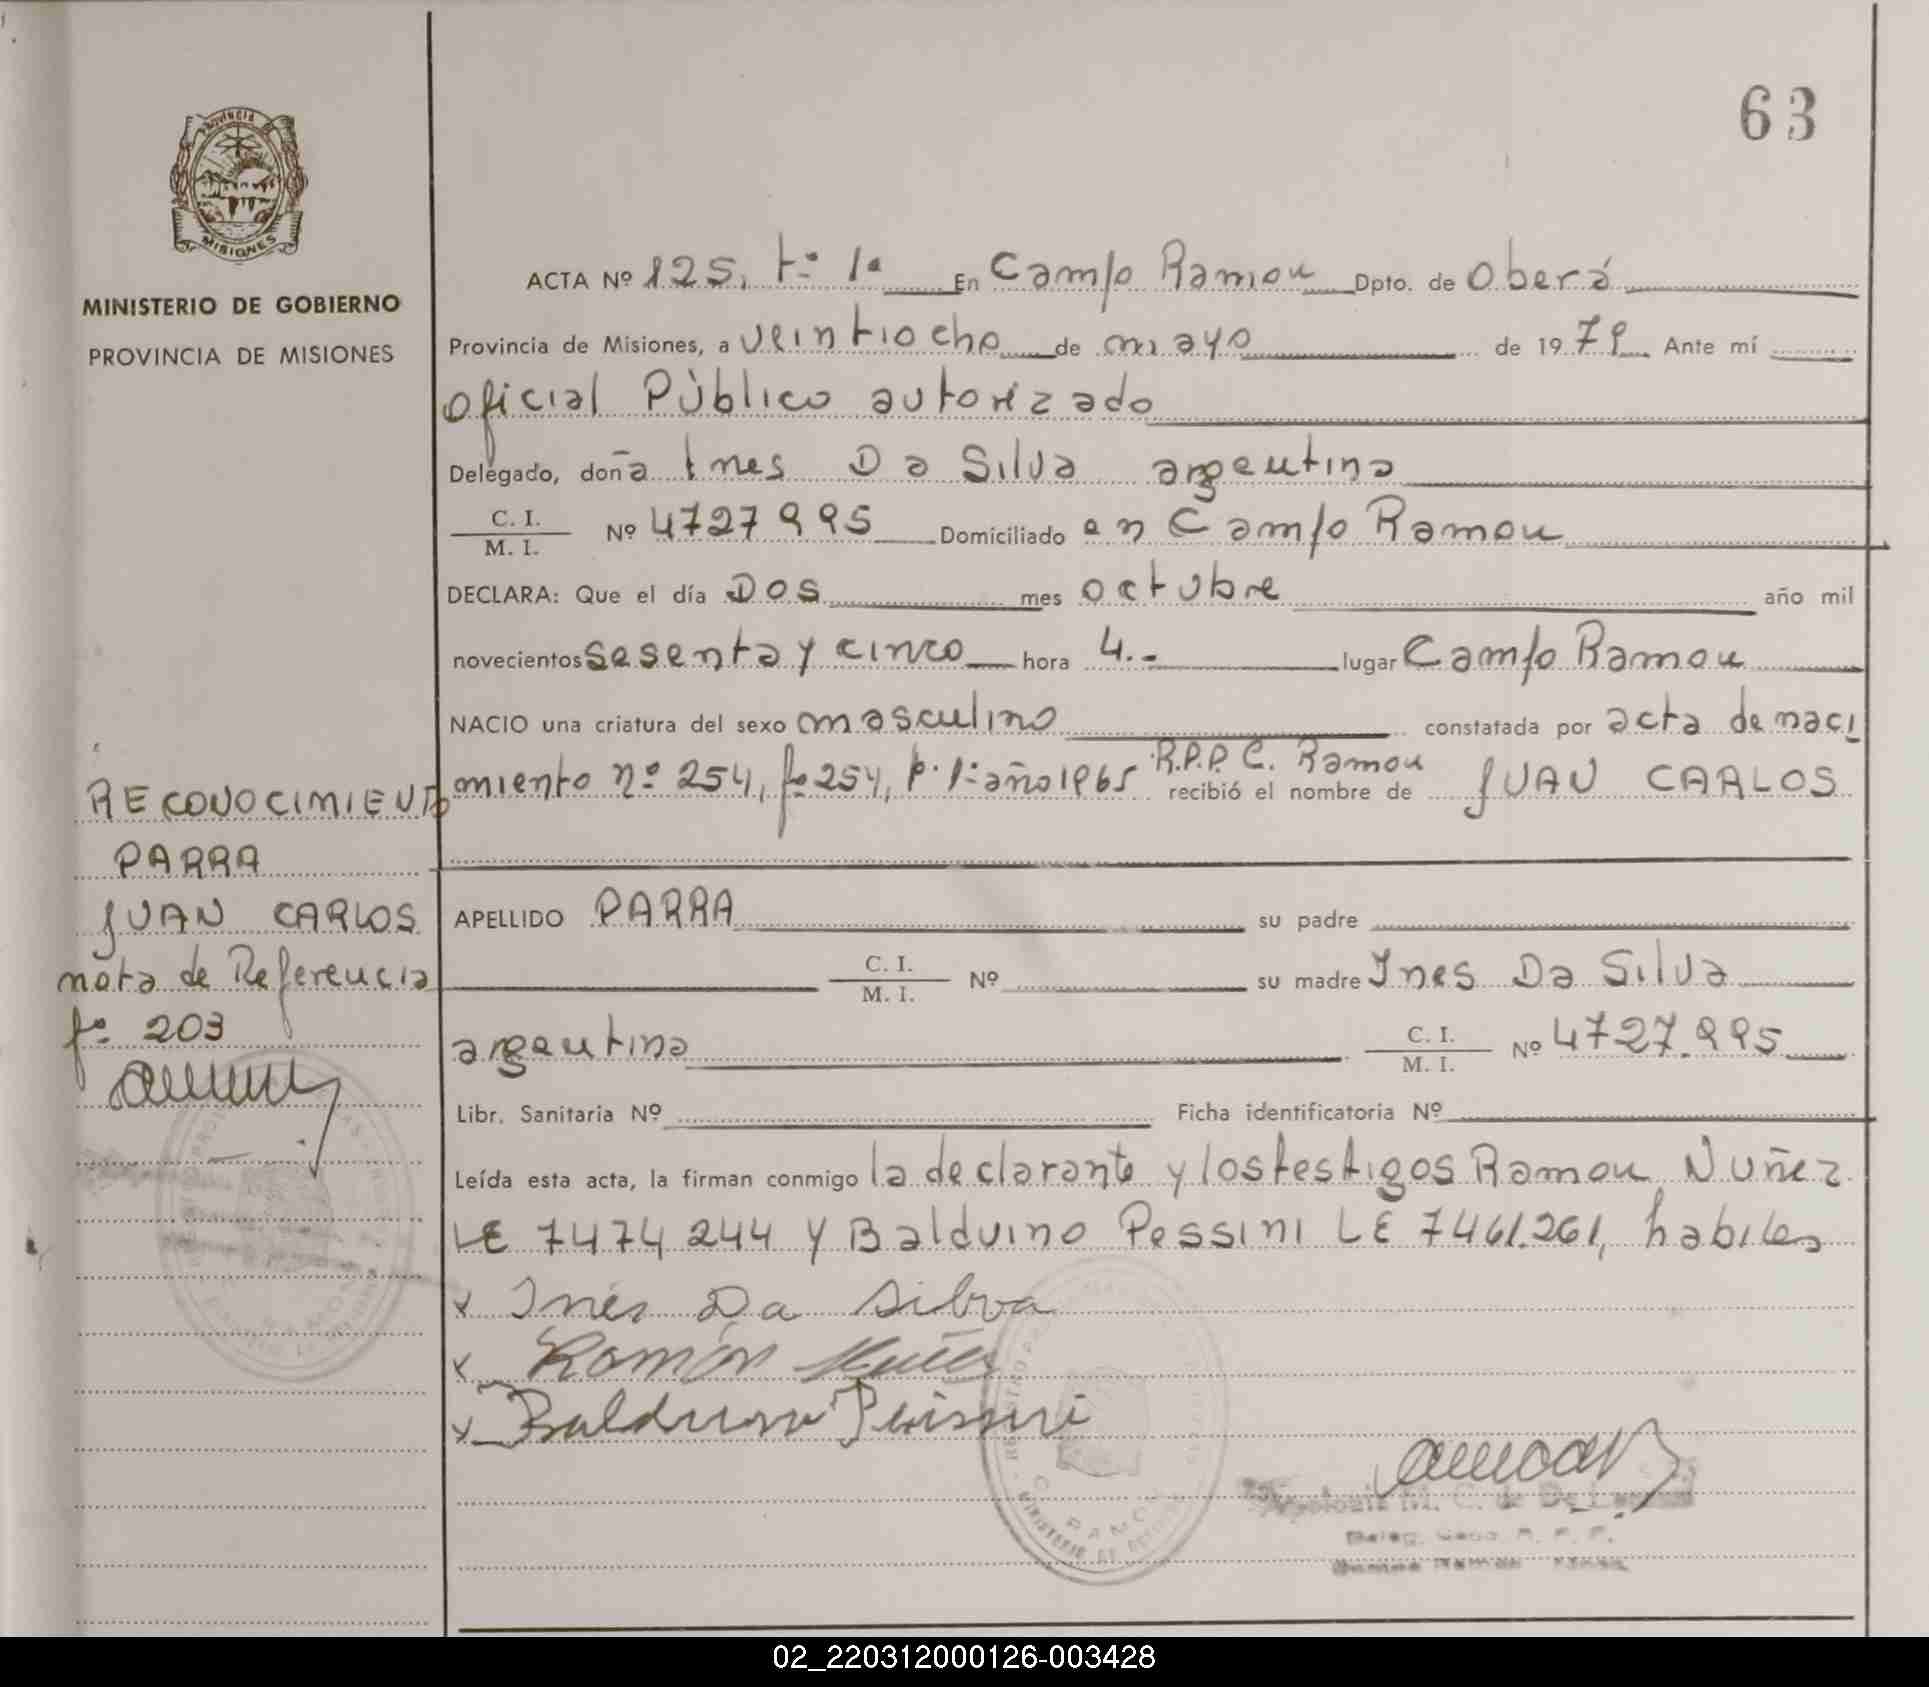 63
PROVINCIA DE
MISIONES
MINISTERIO DE GOBIERNO
PROVINCIA DE MISIONES
ACTA Nº 125, tº 1º En Campo Ramon Dpto. de Oberá
Provincia de Misiones, a veintiocho de mayo de 1979 Ante mí
Oficial Público autorizado
Delegado, doña Ines Da Silva argentina
C. I. / M. I. Nº 4727995 Domiciliado en Campo Ramon
DECLARA: Que el día Dos mes octubre año mil
novecientos sesenta y cinco hora 4.- lugar Campo Ramon
NACIO una criatura del sexo masculino constatada por acta de naci
miento nº 254, fº 254, tº 1º año 1965 R.P.P. C. Ramon recibió el nombre de JUAN CARLOS
RECONOCIMIENTO
PARRA
JUAN CARLOS
nota de Referencia
fº 203
APELLIDO PARRA su padre
C. I. / M. I. Nº su madre Ines Da Silva
argentina C. I. / M. I. Nº 4727.995
Libr. Sanitaria Nº Ficha identificatoria Nº
Leída esta acta, la firman conmigo la declarante y los testigos Ramon Nuñez
LE 7474244 y Balduino Pessini LE 7461.261, habiles
x Inés Da Silva
x Ramón Nuñez
x Balduino Peissini
02_220312000126-003428